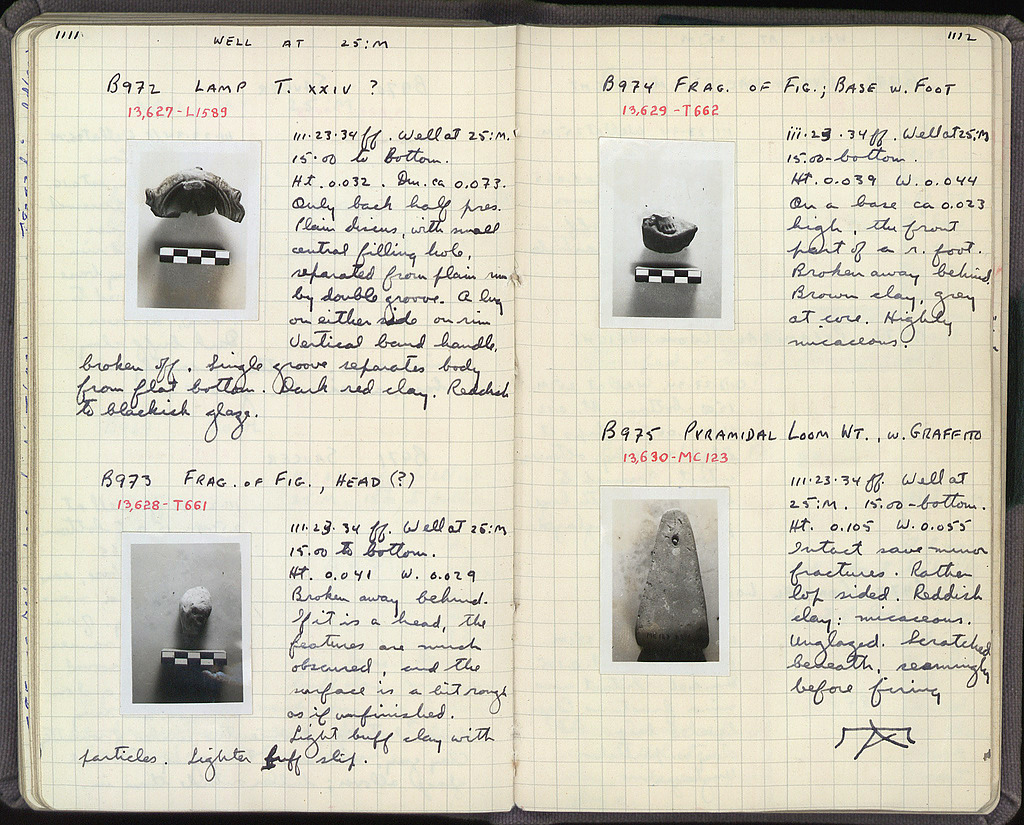 1111.
WELL AT 25:M
B972 LAMP T. XXIV ?
13,627-L1589
111.23.34 ff. Well at 25:M.
15.00 to Bottom.
Ht. 0.032. Dm. ca 0.073.
Only back half pres.
Plain discus, with small
central filling hole,
separated from plain rim
by double groove. A lug
on either side on rim
Vertical band handle,
broken off. Single groove separates body
from flat bottom. Dark red clay. Reddish
to blackish glaze.
B973 FRAG. OF FIG., HEAD (?)
13,628-T661
111.23.34 ff. Well at 25:M
15.00 to bottom.
Ht. 0.041 W. 0.029
Broken away behind.
If it is a head, the
features are much
obscured, and the
surface is a bit rough
as if unfinished.
Light buff clay with
particles. Lighter buff slip.
1112
B974 FRAG. OF FIG.; BASE W. FOOT
13,629-T662
iii.23.34 ff. Well at 25:M
15.00-bottom.
Ht. 0.039 W. 0.044
On a base ca 0.023
high, the front
part of a r. foot.
Broken away behind.
Brown clay, grey
at core. Highly
micaceous.
B975 PYRAMIDAL LOOM WT., W. GRAFFITO
13,630-MC123
111.23.34 ff. Well at
25:M. 15.00-bottom.
Ht. 0.105 W. 0.055
Intact save minor
fractures. Rather
lop sided. Reddish
clay: micaceous.
Unglazed. Scratched
beneath, seemingly
before firing